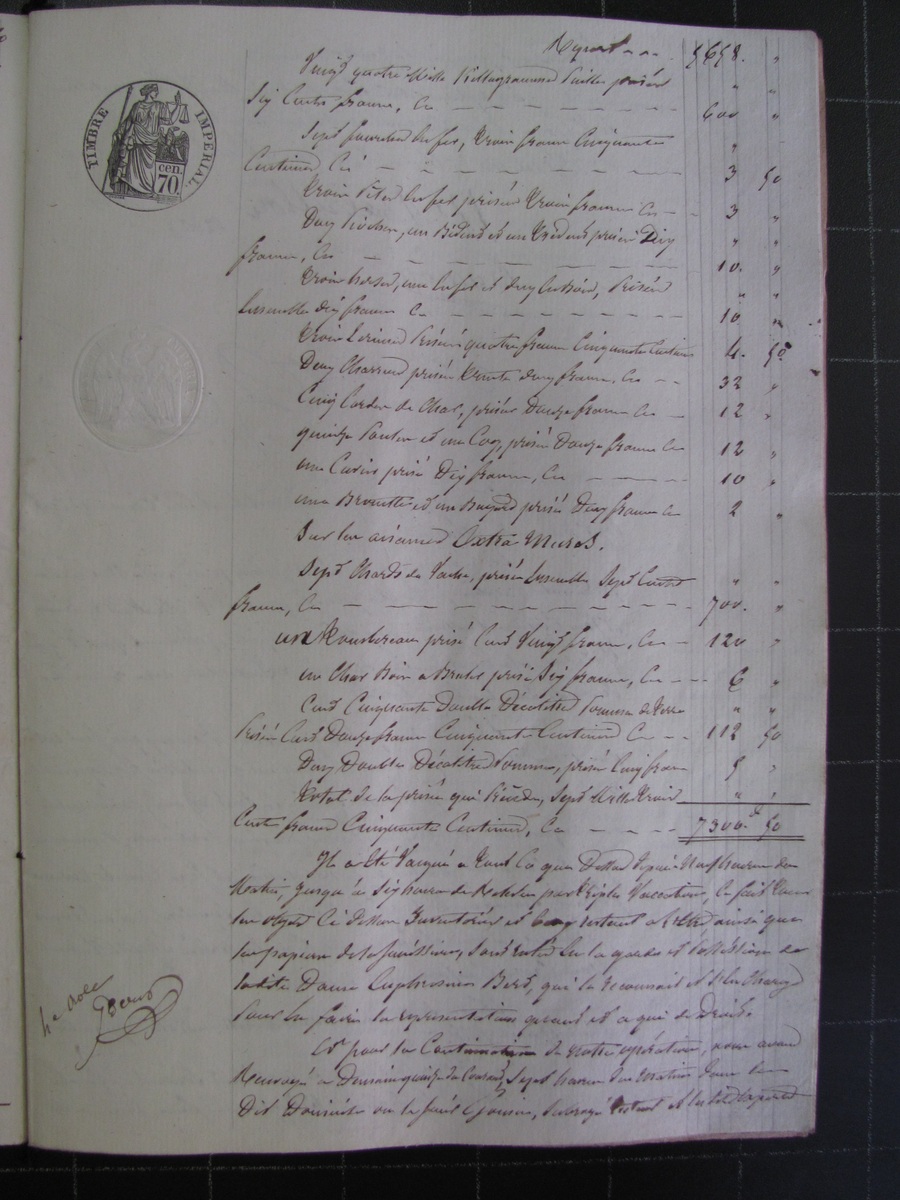 TIMBRE IMPERIAL
cen. 70.
Report 5658. "
Vingt quatre Mille Killogrammes Paille prisés " "
Six Cents francs, Ci 600 "
Sept fourches en fer, Trois francs Cinquante "
Centimes Ci 3 50
Trois en fer prisés Trois francs Ci 3 "
Deux Pioches, un Bident et un Trident prisés Dix " "
francs, Ci 10. "
Trois herses, une en fer et deux en bois, Prisées " "
Ensemble dix francs Ci 10 "
Trois Prisés quatre francs Cinquante Centimes 4. 50
Deux Charrues prisées Trente deux francs, Ci 32 "
Cinq Cordes de Char, prisées Douze francs Ci 12 "
quinze Poules et un Coq, prisés Douze francs Ci 12 "
une prisé Dix francs, Ci 10 "
une Brouette et un Bayard prisés Deux francs Ci 2 "
Sur les aisances Extra Muros.
Sept Chars de prisés Ensemble Sept Cents " "
francs, Ci 700. "
un prisé Cent Vingt francs, Ci 120 "
un Char Bois a Bruler prisé Six francs, Ci 6 "
Cent Cinquante Double Décalitres Pommes de Terre " "
Prisés Cent Douze francs Cinquante Centimes Ci 112 50
Dix Double Décalitres Pommes, prisés Cinq francs 5 "
Total de la prisée qui Précède, Sept Mille Trois " "
Cents francs Cinquante Centimes, Ci 7300. 50
Il a été Vacqué a Tout Ce que Dessus depuis Neuf heures du
Matin, jusqu'à Six heures de par Triple Vacation, Ce fait Tous
les objets Ci dessus Inventoriés et ainsi que
les papiers de la Succession, sont restés En la garde et Possession de
ladite Dame Euphrosine qui le reconnait et S'en Charge
Pour En faire la représentation quand et a qui de Droit.
Et pour la Continuation de Notre opération, nous avons
Renvoyé a Demain quinze du Courant, Sept heures du Matin Dans le
Dit Domicile ou le Cousin, Subrogé et